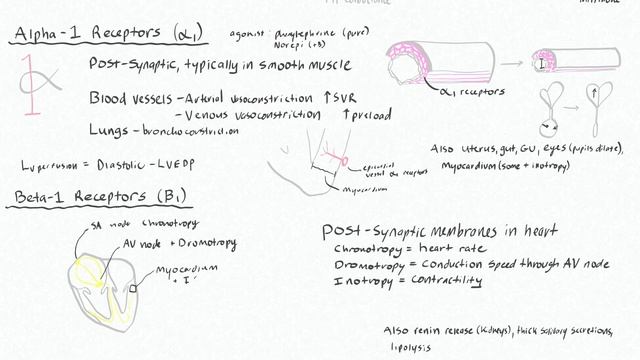 Alpha-1 Receptors (α₁)
agonist: phenylephrine (pure)
Norepi (+B)
Post-Synaptic, typically in smooth muscle
α₁ receptors
Blood vessels - Arterial vasoconstriction ↑SVR
- Venous vasoconstriction ↑preload
Lungs - bronchoconstriction
Also uterus, gut, GU, eyes (pupils dilate),
Myocardium (some + inotropy)
LV perfusion = Diastolic - LVEDP
epicardial
vessel α₁ receptors
myocardium
Beta-1 Receptors (B₁)
SA node Chronotropy
AV node + Dromotropy
Myocardium
+ I
Post-Synaptic membranes in heart
Chronotropy = heart rate
Dromotropy = Conduction speed through AV node
Inotropy = Contractility
Also renin release (kidneys), thick salivary secretions,
lipolysis